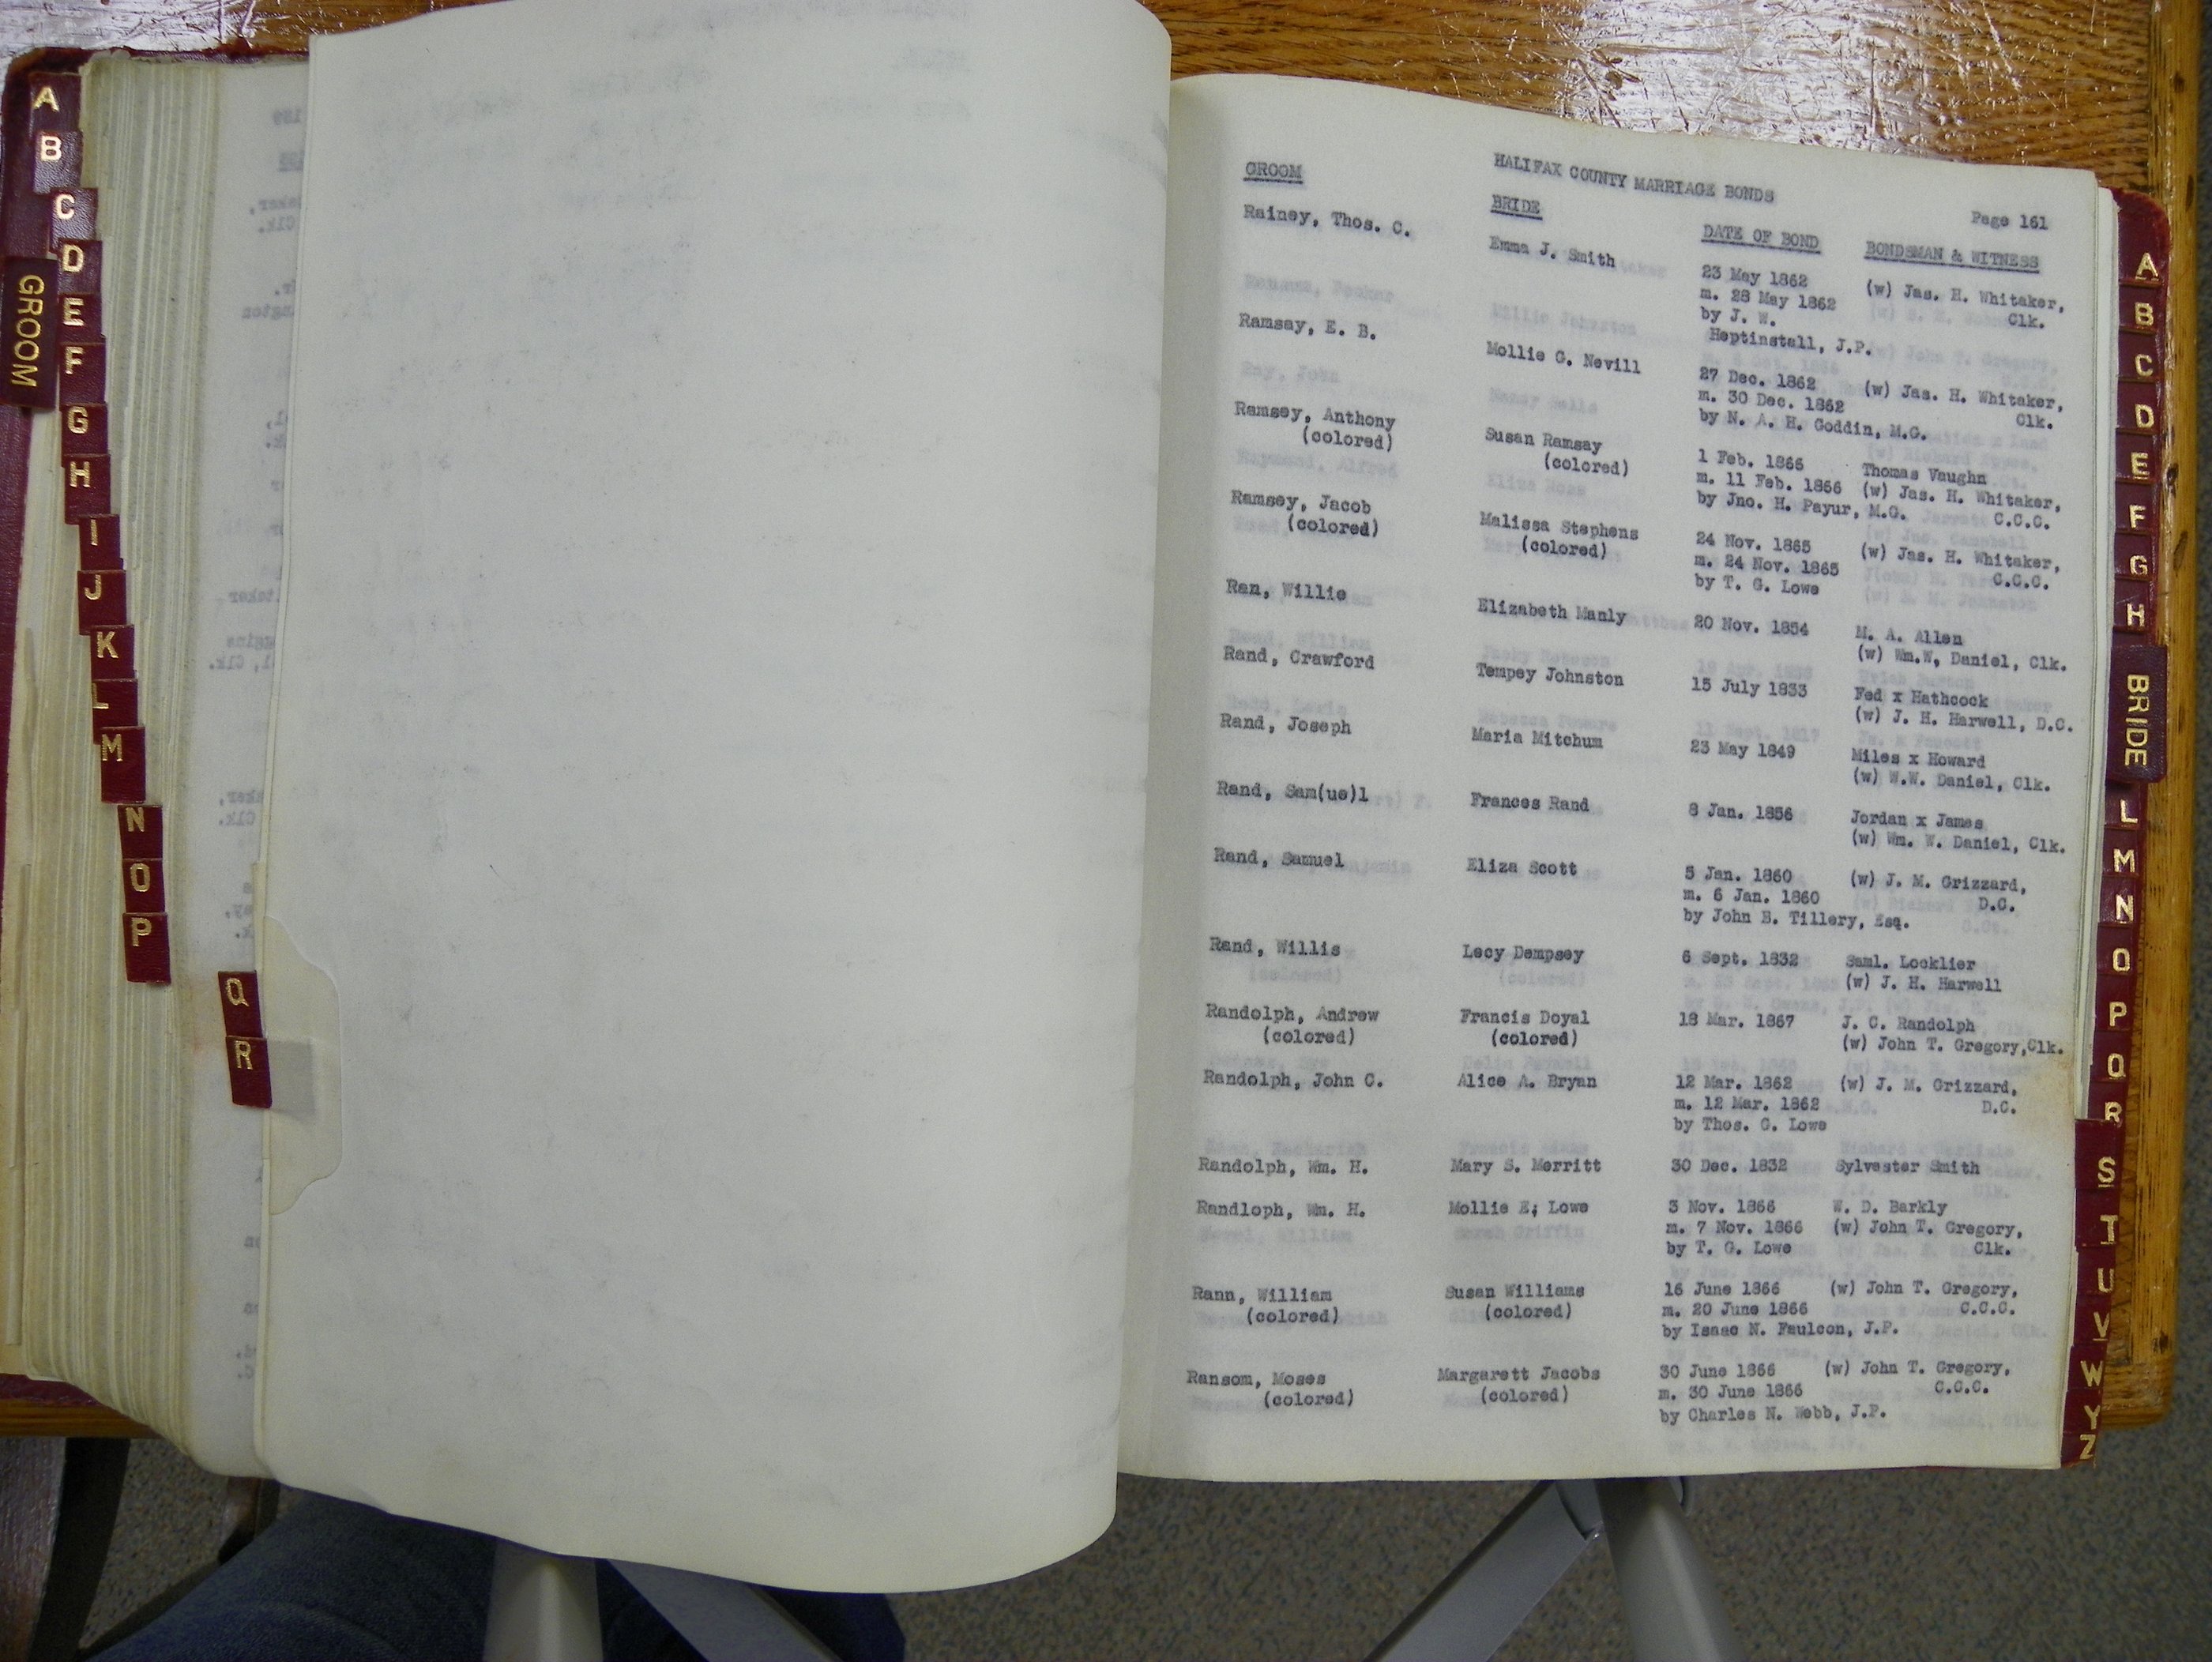 HALIFAX COUNTY MARRIAGE BONDS
Page 161
GROOM BRIDE DATE OF BOND BONDSMAN & WITNESS
Rainey, Thos. C. Emma J. Smith 23 May 1862 (w) Jas. H. Whitaker,
m. 28 May 1862 Clk.
by J. W.
Heptinstall, J.P.
Ramsay, E. B. Mollie G. Nevill 27 Dec. 1862 (w) Jas. H. Whitaker,
m. 30 Dec. 1862 Clk.
by N. A. H. Goddin, M.G.
Ramsey, Anthony Susan Ramsay 1 Feb. 1866 Thomas Vaughn
(colored) (colored) m. 11 Feb. 1866 (w) Jas. H. Whitaker,
by Jno. H. Payur, M.G. C.C.C.
Ramsey, Jacob Malissa Stephens 24 Nov. 1865 (w) Jas. H. Whitaker,
(colored) (colored) m. 24 Nov. 1865 C.C.C.
by T. G. Lowe
Ran, Willie Elizabeth Manly 20 Nov. 1854 M. A. Allen
(w) Wm.W, Daniel, Clk.
Rand, Crawford Tempey Johnston 15 July 1833 Fed x Hathcock
(w) J. H. Harwell, D.C.
Rand, Joseph Maria Mitchum 23 May 1849 Miles x Howard
(w) W.W. Daniel, Clk.
Rand, Sam(ue)l Frances Rand 8 Jan. 1856 Jordan x James
(w) Wm. W. Daniel, Clk.
Rand, Samuel Eliza Scott 5 Jan. 1860 (w) J. M. Grizzard,
m. 6 Jan. 1860 D.C.
by John B. Tillery, Esq.
Rand, Willis Lecy Dempsey 6 Sept. 1832 Saml. Locklier
(w) J. H. Harwell
Randolph, Andrew Francis Doyal 18 Mar. 1867 J. C. Randolph
(colored) (colored) (w) John T. Gregory,Clk.
Randolph, John C. Alice A. Bryan 12 Mar. 1862 (w) J. M. Grizzard,
m. 12 Mar. 1862 D.C.
by Thos. G. Lowe
Randolph, Wm. H. Mary S. Merritt 30 Dec. 1832 Sylvester Smith
Randloph, Wm. H. Mollie E; Lowe 3 Nov. 1866 W. D. Barkly
m. 7 Nov. 1866 (w) John T. Gregory,
by T. G. Lowe Clk.
Rann, William Susan Williams 16 June 1866 (w) John T. Gregory,
(colored) (colored) m. 20 June 1866 C.C.C.
by Isaac N. Faulcon, J.P.
Ransom, Moses Margarett Jacobs 30 June 1866 (w) John T. Gregory,
(colored) (colored) m. 30 June 1866 C.C.C.
by Charles N. Webb, J.P.
GROOM
A
B
C
D
E
F
G
H
I
J
K
L
M
N
O
P
Q
R
A
B
C
D
E
F
G
H
BRIDE
L
M
N
O
P
Q
R
S
T
U
V
W
Y
Z